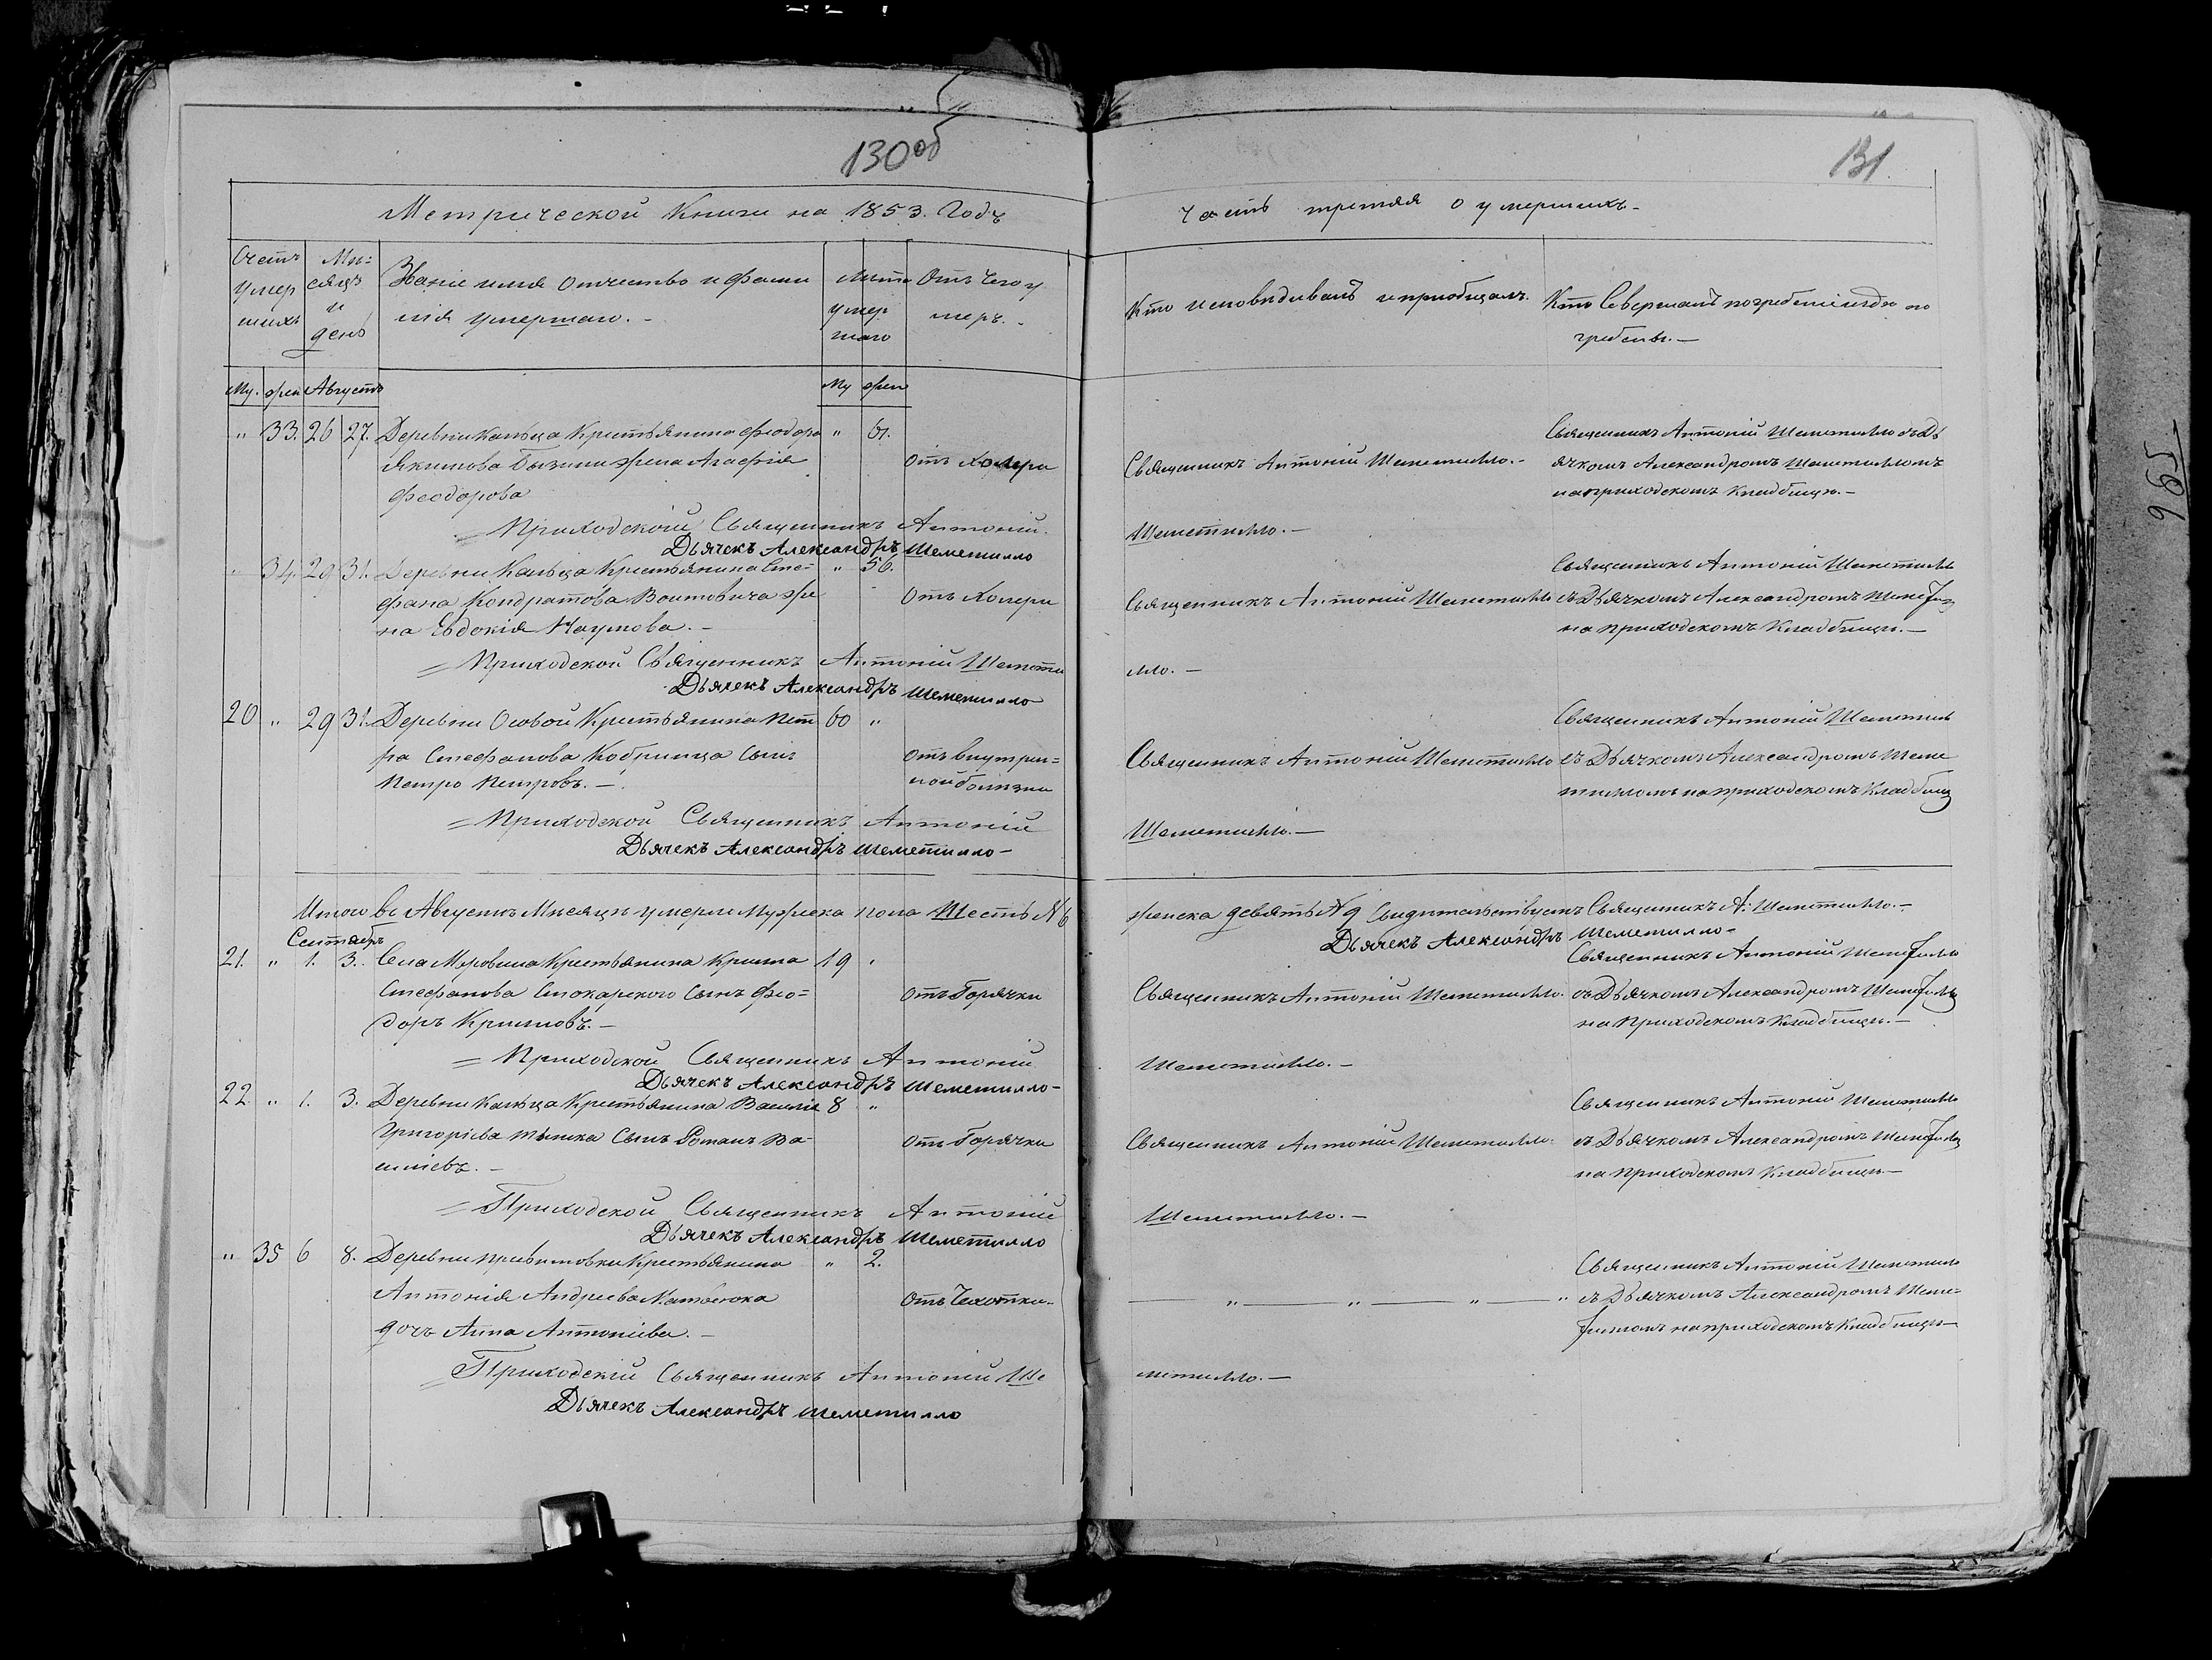 130 об
131
Метрической Книги на 1853. Годъ
Часть третяя о умершихъ.
Счетъ умершихъ
Мѣсяцъ и день
Званіе имя отчество и фамилія умершаго. –
Лѣта умершаго
Отъ чего умеръ. –
Кто исповѣдивалъ и приобщалъ.
Кто Совершалъ погребеніе и гдѣ погребены. –
Му. жен Августъ
Му жен
" 33. 26 27. Деревни Кальца Крестьянина Феодора " 61.
Якимова жена Агафія
Феодорова
Отъ Холеры
Священникъ Антоній Шеметилло. –
Священникъ Антоній Шеметилло съ Дь
ячкомъ Александромъ Шеметилломъ
на приходскомъ Кладбищѣ. –
Приходскій Священникъ Антоній
Шеметилло. –
Дьячекъ Александръ Шеметилло
34. 29 31. Деревни Кальца Крестьянина Сте= " 56.
фана Кондратова Воитовича же
на Евдокія Наумова. –
Отъ Холеры
Священникъ Антоній Шеметилло
Священникъ Антоній Шеметилло
съ Дьячкомъ Александромъ
на приходскомъ Кладбищѣ. –
= Приходской Священникъ Антоній Шемети
лло. –
Дьячекъ Александръ Шеметилло
20 " 29 31. Деревни Осовой Крестьянина Пет 60 "
ра Стефанова Кобринца Сынъ
Петро Петровъ. –
Отъ внутрен=
ной болѣзни
Священникъ Антоній Шеметилло
Священникъ Антоній Шеметилл
съ Дьячкомъ Александромъ Шеме
тилломъ на приходскомъ Кладбищ
= Приходской Священникъ Антоній
Шеметилло. –
Дьячекъ Александръ Шеметилло –
Итого въ Августѣ Мѣсяцѣ умерли Мужеска пола Шесть № 6
женска девять № 9 Свидѣтельствуетъ Священникъ А. Шеметилло. –
Дьячекъ Александръ Шеметилло –
Сентябрь
21. " 1. 3. Села Крестьянина Крима 19 "
Стефанова Стокарского Сынъ Фео=
доръ Кримовъ. –
Отъ Горячки
Священникъ Антоній Шеметилло.
Священникъ Антоній Шеметилло
съ Дьячкомъ Александромъ
на Приходскомъ Кладбищѣ. –
= Приходской Священникъ Антоній
Шеметилло. –
Дьячекъ Александръ Шеметилло –
22. " 1. 3. Деревни Кальца Крестьянина Василія 8 "
Григоріева Сынъ Романъ Ва-
силіевъ. –
Отъ Горячки
Священникъ Антоній Шеметилло.
Священникъ Антоній Шеметилло
съ Дьячкомъ Александромъ
на Приходскомъ Кладбищѣ –
= Приходской Священникъ Антоній
Шеметилло. –
Дьячекъ Александръ Шеметилло
" 35 6 8. Деревни Крестьянина " 2.
Антонія Андреева
дочь Анна Антоніева. –
Отъ Чахотки
" " " "
Священникъ Антоній Шеметилл
съ Дьячкомъ Александромъ Шеме=
тилломъ на приходскомъ Кладбищѣ –
= Приходскій Священникъ Антоній Ше
метилло. –
Дьячекъ Александръ Шеметилло
965